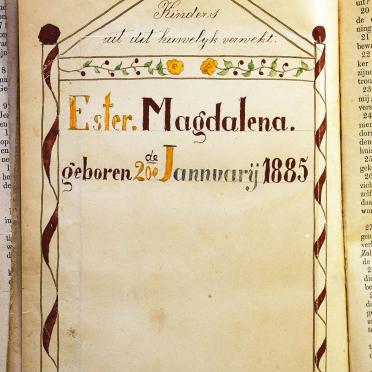 Kinders
uit dit huwelyk verwekt.
Ester. Magdalena.
geboren 20e de Jannuarij 1885